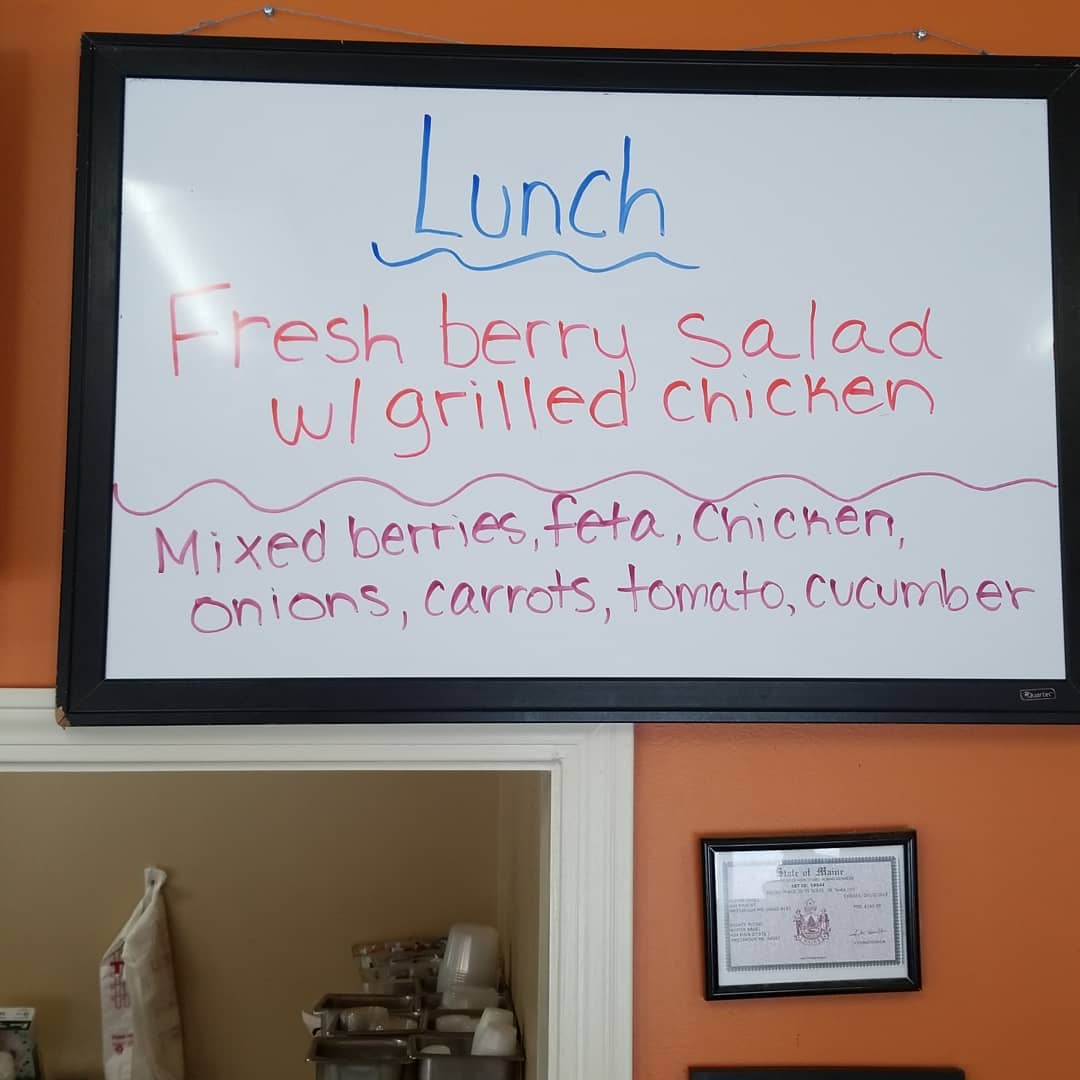 Lunch
Fresh berry salad
w/ grilled chicken
Mixed berries, feta, Chicken,
onions, carrots, tomato, cucumber
Quartet
State of Maine